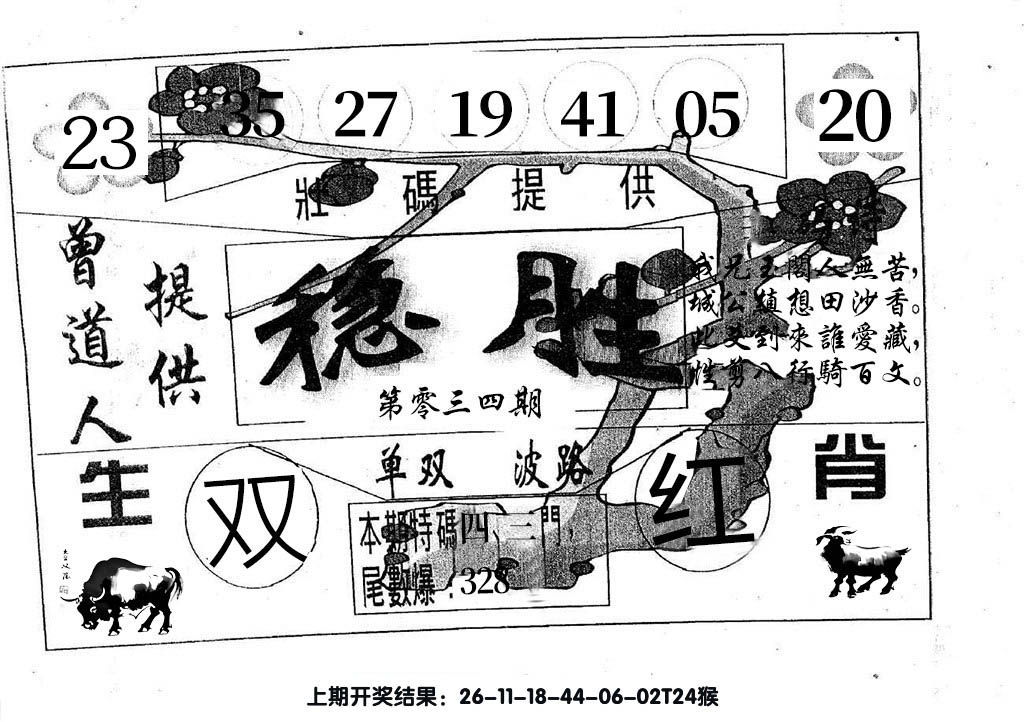 23 35 27 19 41 05 20
壯碼提供
曾道人
提供
稳胜
第零三四期
我兄玉閣人無苦，
城公鎮想田沙香。
此爻到來誰愛藏，
性剪八行騎百文。
单双 波路
生肖
双 红
本期特碼四、三門，
尾數爆：328
上期开奖结果：26-11-18-44-06-02T24猴